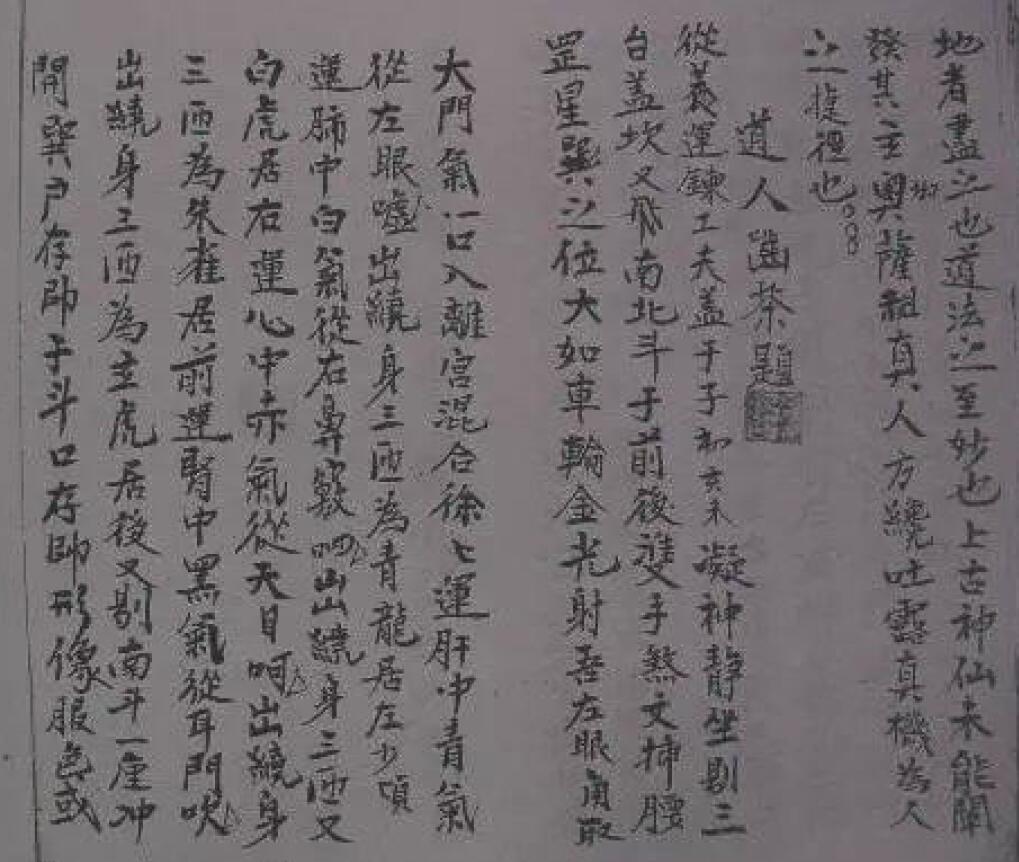 地者盡之也道法之至妙也上古神仙未能闡
發其玄奧薩祖真人方纔吐露真機為人
之捷徑也
道人幽茶題
從養運鍊工夫盖于子初亥末凝神静坐剔三
台盖坎又飛南北斗于前後雙手煞文揷腰
罡星巽之位大如車輪金光射吾左眼角取
大門氣一口入離宮混合徐匕運肝中青氣
從左眼噓出繞身三匝為青龍居左少頃
運肺中白氣從右鼻竅呬出繞身三匝又
白虎居右運心中赤氣從天目呵出繞身
三匝為朱雀居前運腎中黑氣從耳門吹
出繞身三匝為玄虎居後又剔南斗一座冲
開巽户存帥于斗口存帥形像服色或